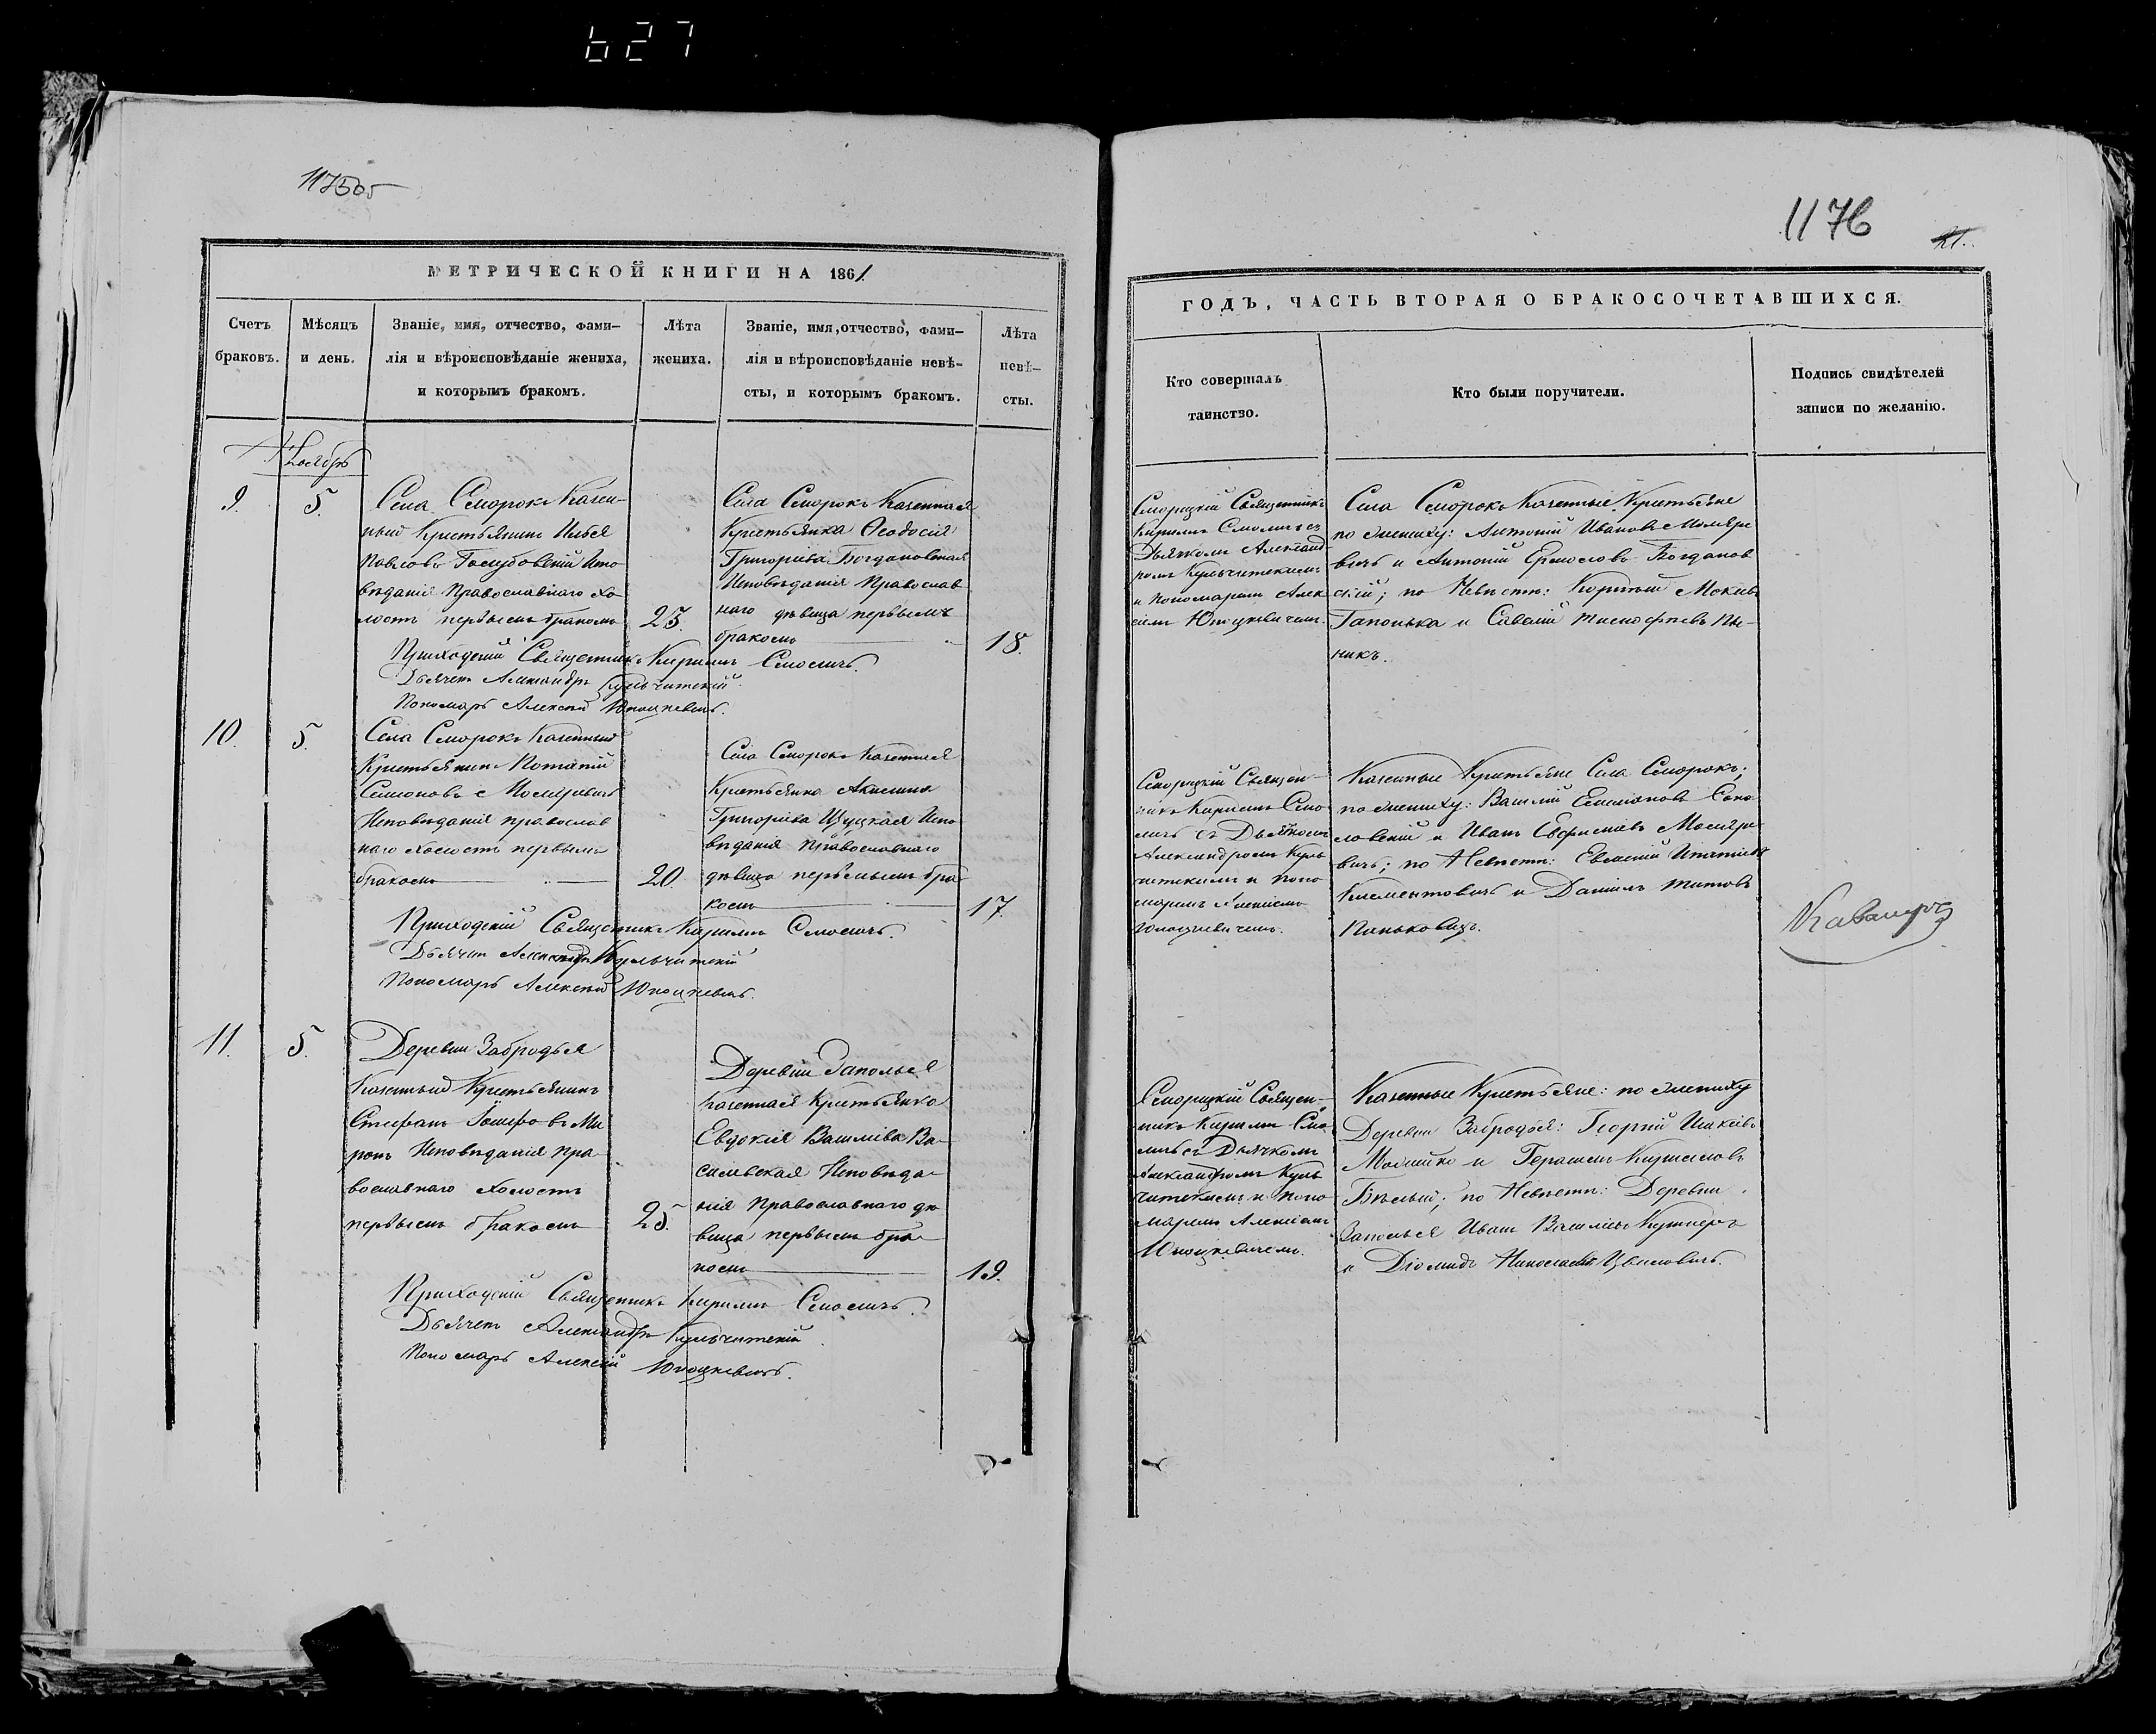 627
117505
1176
21.
МЕТРИЧЕСКОЙ КНИГИ НА 1861
Счетъ
браковъ.
Мѣсяцъ
и день.
Званіе, имя, отчество, фами-
лія и вѣроисповѣданіе жениха,
и которымъ бракомъ.
Лѣта
жениха.
Званіе, имя, отчество, фами-
лія и вѣроисповѣданіе невѣ-
сты, и которымъ бракомъ.
Лѣта
невѣ-
сты.
Ноябрь
9.
5.
Села Сморокъ Казен-
ный Крестьянинъ Илья
Павловъ Голубовскій Испо
вѣданія Православнаго хо
лостъ первымъ бракомъ
23.
Села Сморокъ Казенная
Крестьянка Ѳеодосія
Григоріева Богдановская
Исповѣданія Православ
наго дѣвица первымъ
бракомъ
18.
Приходскій Священникъ Кириллъ Смоличъ.
Дьячекъ Александръ Кульчитскій
Пономарь Алексѣй Юноцкевичъ.
10.
5.
Села Сморокъ Казенный
Крестьянинъ Потапій
Семіоновъ
Исповѣданія православ
наго холостъ первымъ
бракомъ
20.
Села Сморокъ Казенная
Крестьянка Акилина
Григоріева Щуцкая Испо
вѣданія Православнаго
дѣвица первымъ бра
комъ
17.
Приходскій Священникъ Кириллъ Смоличъ.
Дьячекъ Александръ Кульчитскій
Пономарь Алексѣй Юноцкевичъ.
11.
5.
Деревни Забродья
Казенный Крестьянинъ
Стефанъ Іосифовъ Ми
ронъ Исповѣданія Пра
вославнаго холостъ
первымъ бракомъ
25.
Деревни Заполья
Казенная Крестьянка
Евдокія Василіева Ва-
силевская Исповѣда-
нія Православнаго дѣ
вица первымъ бра-
комъ
19.
Приходскій Священникъ Кириллъ Смоличъ.
Дьячекъ Александръ Кульчитскій.
Пономарь Алексѣй Юноцкевичъ.
ГОДЪ, ЧАСТЬ ВТОРАЯ О БРАКОСОЧЕТАВШИХСЯ.
Кто совершалъ
таинство.
Кто были поручители.
Подпись свидѣтелей
записи по желанію.
Сморцкій Священникъ
Кириллъ Смоличъ съ
Дьячкомъ Александ-
ромъ Кульчитскимъ
и Пономаремъ Алек
сіемъ Юноцкевичемъ.
Села Сморокъ Казенные Крестьяне
по жениху: Антоній Ивановъ
вичъ и Антоній Богданов
скій; по Невѣстѣ:
Гапонька и Савва
никъ.
Сморцкій Священ-
никъ Кириллъ Смо
личъ съ Дьячкомъ
Александромъ Куль
читскимъ и Поно
маремъ Алексіемъ
Юноцкевичемъ.
Казенные Крестьяне Села Сморокъ;
по жениху: Василій Соко
ловскій и Иванъ
вичъ; по Невѣстѣ:
Климентовичъ и Даніилъ Титовъ
Паньковецъ.
Сморцкій Священ-
никъ Кириллъ Смо
личъ съ Дьячкомъ
Александромъ Куль
читскимъ и Поно-
маремъ Алексіемъ
Юноцкевичемъ.
Казенные Крестьяне: по жениху
Деревни Забродья: Георгій Исакіевъ
и Герасимъ Кирилловъ
Бѣлый; по Невѣстѣ: Деревни
Заполья Иванъ Василіевъ Кушнеръ
и Діомидъ